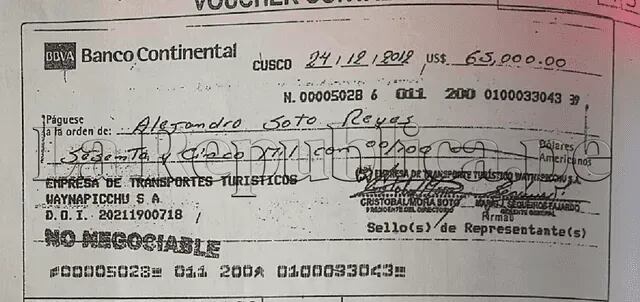 VOUCHER
BBVA Banco Continental
CUSCO 24/12/2012 US$ 65,000.00
N. 00005028 6 011 200 0100033043 39
Páguese
a la orden de: Alejandro Soto Reyes
Sesenta y Cinco Mil con 00/100 Dólares
Americanos
La República.pe
EMPRESA DE TRANSPORTES TURISTICOS
WAYNAPICCHU S A
D.O.I. 20211900718
EMPRESA DE TRANSPORTE TURÍSTICO WAYNAPICCHU S.A.
CRISTOBAL MORA SOTO
PRESIDENTE DEL DIRECTORIO
SEQUEIROS FAJARDO
GERENTE GENERAL
Firma
Sello(s) de Representante(s)
NO NEGOCIABLE
00005028 011 200 0100033043